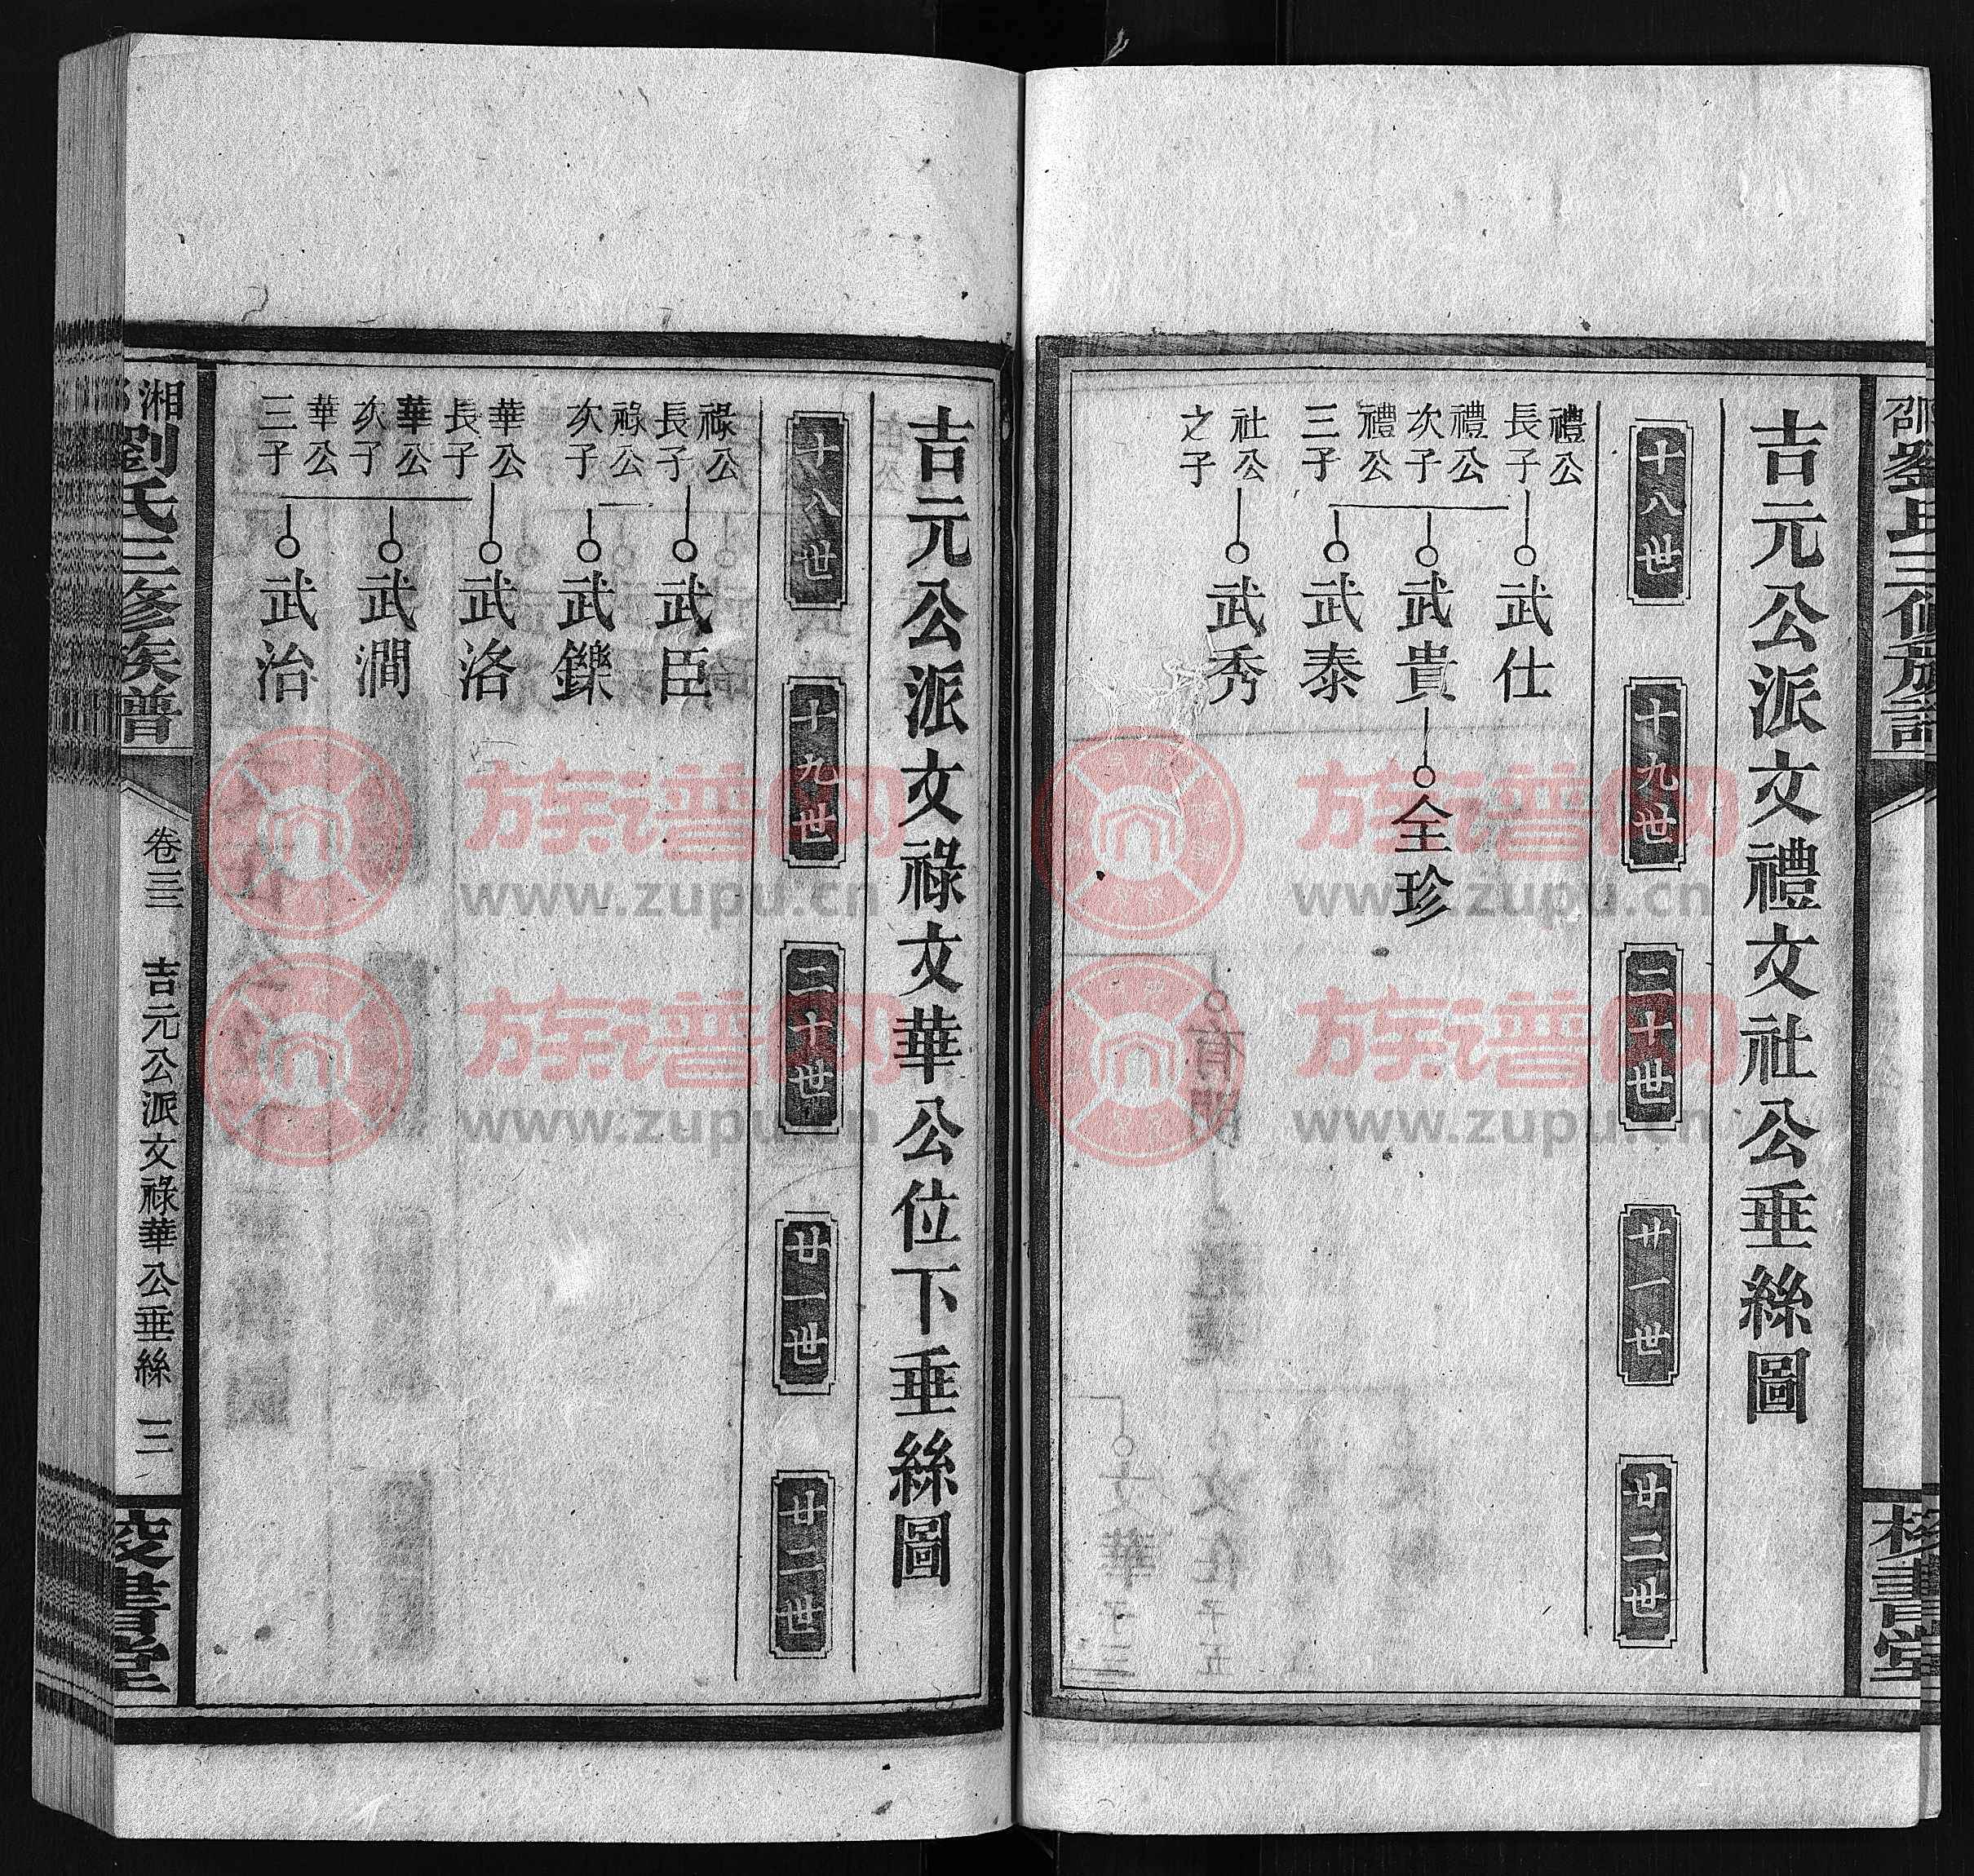 吉元公派文禮文社公垂絲圖
十八世
十九世
二十世
廿一世
廿二世
禮公
長子
武仕
禮公
次子
武貴
全珍
禮公
三子
武泰
社公
之子
武秀
校書堂
吉元公派文祿文華公位下垂絲圖
十八世
十九世
二十世
廿一世
廿二世
祿公
長子
武臣
祿公
次子
武鑠
華公
長子
武洛
華公
次子
武澗
華公
三子
武治
湘
劉氏三修族譜
卷三
吉元公派文祿華公垂絲
三
校書堂
族谱网
www.zupu.cn
族谱网
www.zupu.cn
族谱网
www.zupu.cn
族谱网
www.zupu.cn